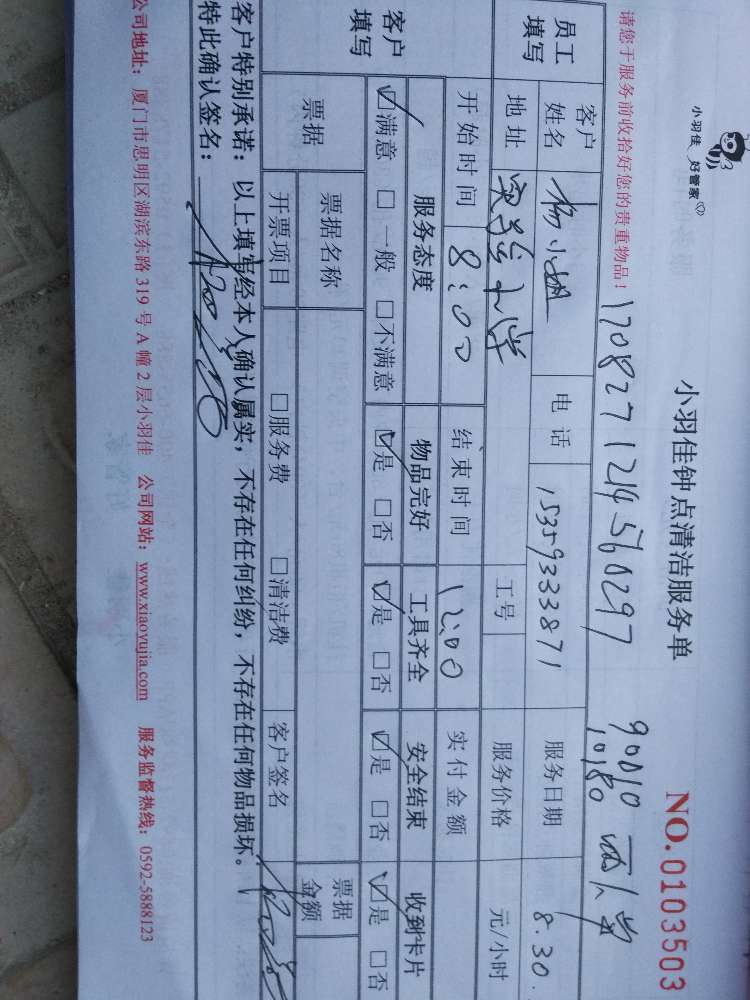 小羽佳 好管家
小羽佳钟点清洁服务单
NO.0103503
请您于服务前收拾好您的贵重物品!
1708271214560297
90010
10180
员工填写
客户姓名 杨小姐 电话 15359333871 服务日期 8.30.
地址 工号 服务价格 元/小时
开始时间 8:00 结束时间 12:00 实付金额
客户填写
服务态度 物品完好 工具齐全 安全结束 收到卡片
☑满意 □一般 □不满意 ☑是 □否 ☑是 □否 ☑是 □否 ☑是 □否
票据 票据名称 票据金额
开票项目 □服务费 □清洁费 客户签名
客户特别承诺:以上填写经本人确认属实,不存在任何纠纷,不存在任何物品损坏。
特此确认签名:
公司地址:厦门市思明区湖滨东路 319 号 A 幢 2 层小羽佳 公司网站:www.xiaoyujia.com 服务监督热线:0592-5888123